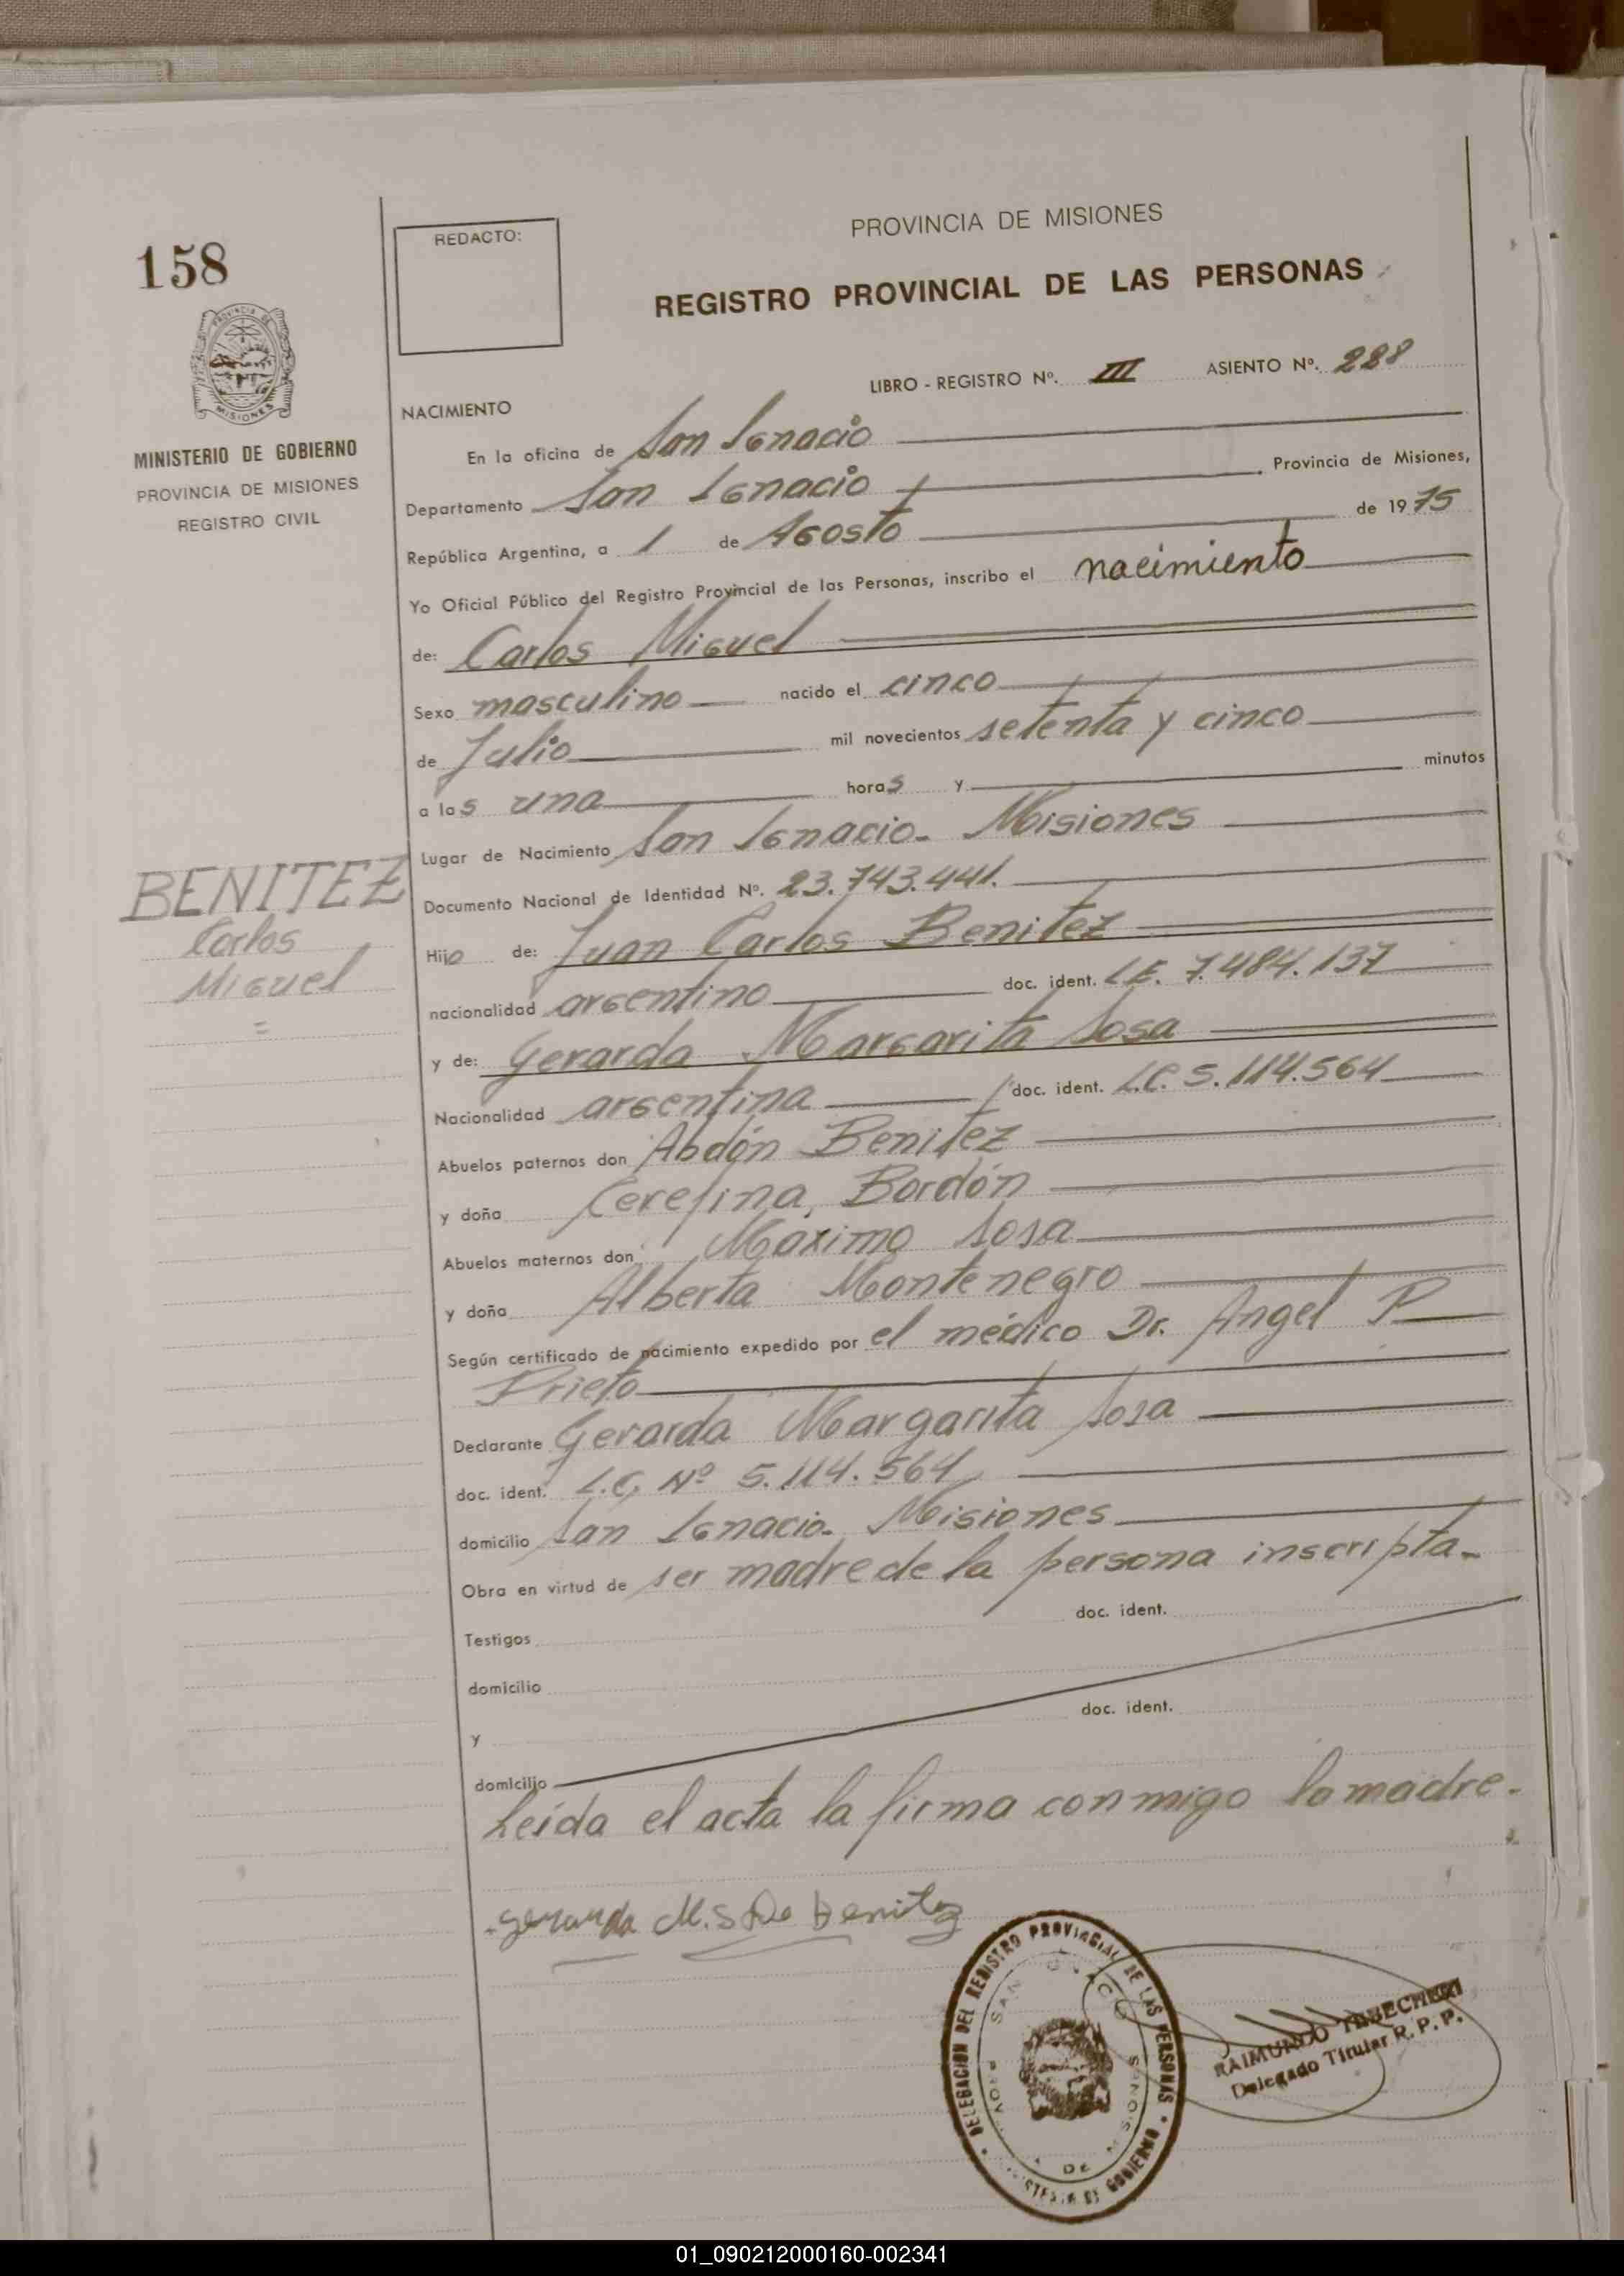 158
REDACTO:
PROVINCIA DE MISIONES
REGISTRO PROVINCIAL DE LAS PERSONAS
PROVINCIA DE
MISIONES
MINISTERIO DE GOBIERNO
PROVINCIA DE MISIONES
REGISTRO CIVIL
LIBRO - REGISTRO Nº. III ASIENTO Nº. 288
NACIMIENTO
En la oficina de San Ignacio
Departamento San Ignacio Provincia de Misiones,
República Argentina, a 1 de Agosto de 1975
Yo Oficial Público del Registro Provincial de las Personas, inscribo el nacimiento
de: Carlos Miguel
Sexo masculino nacido el cinco
de Julio mil novecientos setenta y cinco
a las una horas y minutos
Lugar de Nacimiento San Ignacio- Misiones
Documento Nacional de Identidad Nº. 23.743.441.
BENITEZ
Carlos
Miguel
Hijo de: Juan Carlos Benitez
nacionalidad argentino doc. ident. L.E. 7.484.137
y de: Gerarda Margarita Sosa
Nacionalidad argentina doc. ident. L.C. 5.114.564
Abuelos paternos don Abdón Benitez
y doña Bordón
Abuelos maternos don Máximo Sosa
y doña Alberta Montenegro
Según certificado de nacimiento expedido por el médico Dr. Angel P
Prieto
Declarante Gerarda Margarita Sosa
doc. ident. L.C. Nº 5.114.564
domicilio San Ignacio- Misiones
Obra en virtud de ser madre de la persona inscripta-
Testigos doc. ident.
domicilio
y doc. ident.
domicilio
Leída el acta la firma conmigo la madre-
Gerarda M. S de Benitez
DELEGACION DEL REGISTRO PROVINCIAL DE LAS PERSONAS
MINISTERIO DE GOBIERNO
SAN IGNACIO
PROV. DE MISIONES
RAIMUNDO
Delegado Titular R. P. P.
01_090212000160-002341